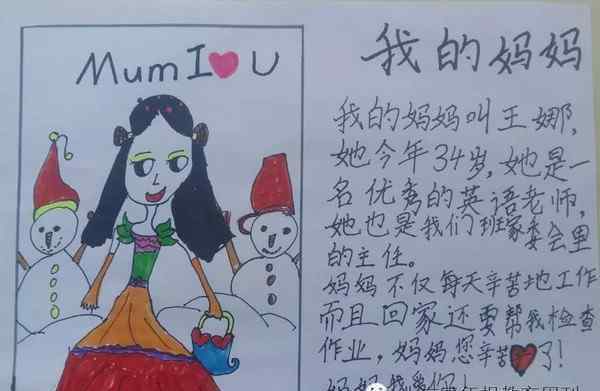 Mum I ❤ U
我的妈妈
我的妈妈叫王娜,
她今年34岁,她是一
名优秀的英语老师,
她也是我们班家委会里
的主任。
妈妈不仅每天辛苦地工作
而且回家还要帮我检查
作业,妈妈您辛苦了!
妈妈我爱你!